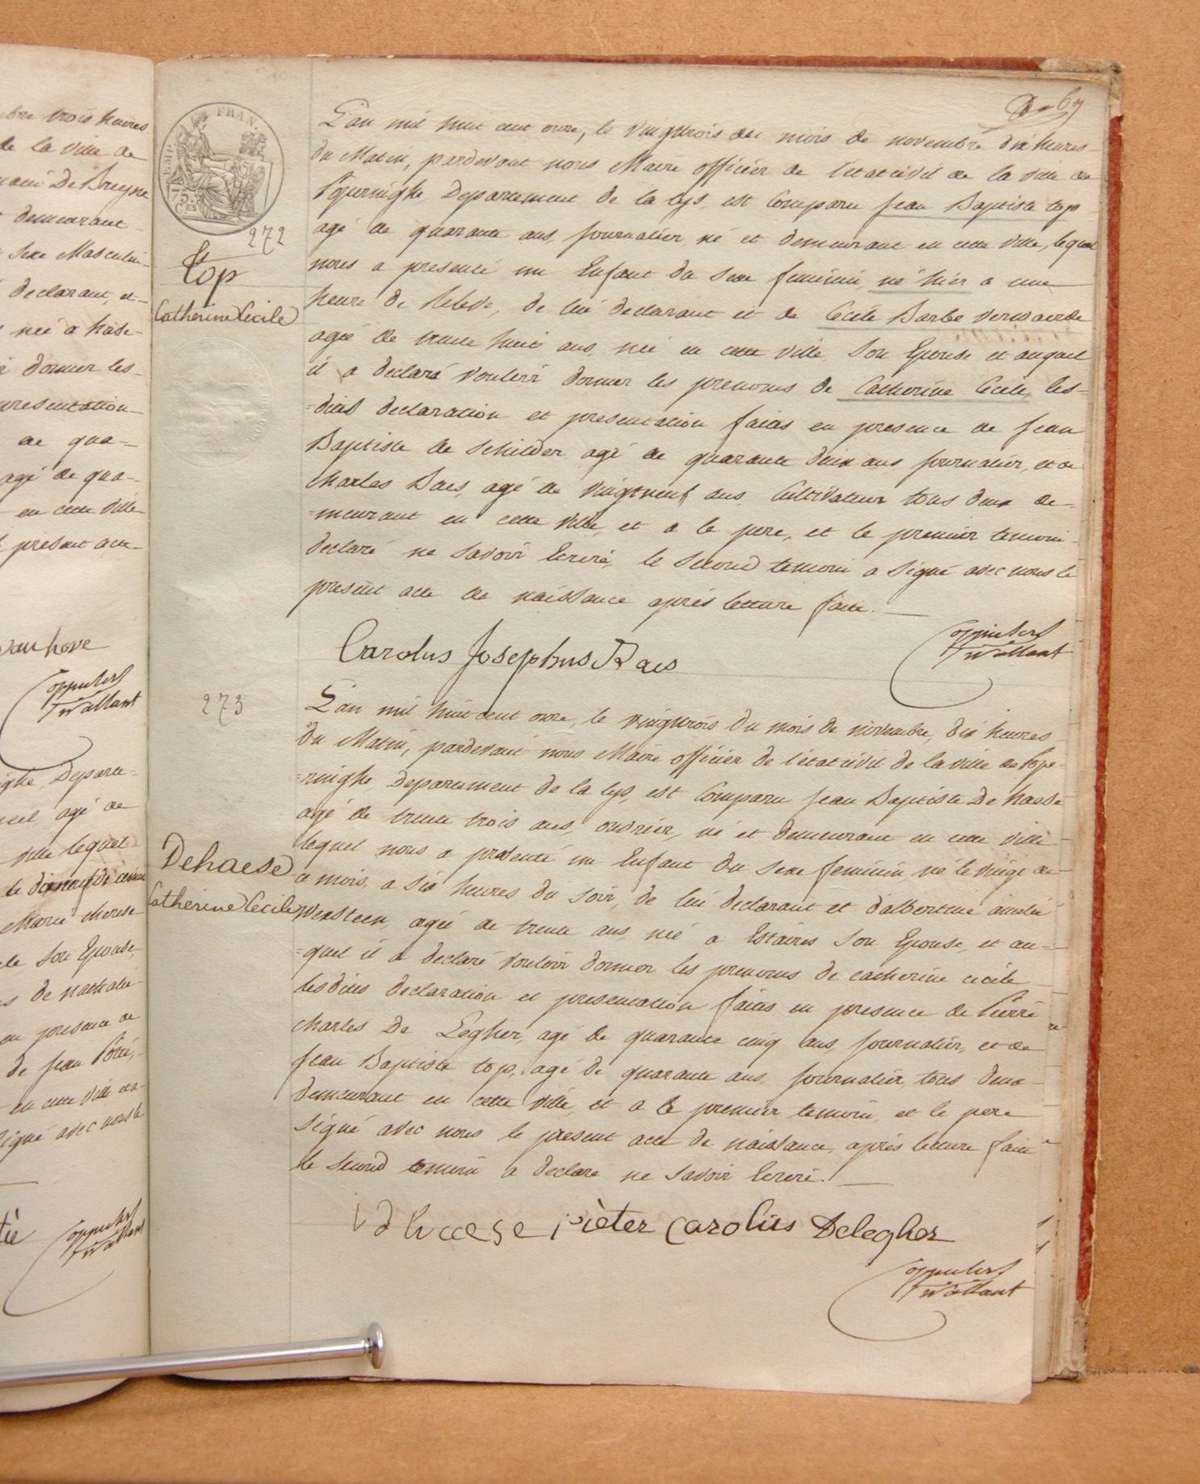 bre trois heures
de la ville de
De Breyne
demeurant
Sexe Masculin
declarant, et
née a
donner les
presentation
de qua-
agé de qua-
en cette ville
present acte
vanhove
67
FRAN.
272
top
Catherine Cecile
L'an mil huit cent onze, le vingttrois du mois de novembre dix heures
du Matin, pardevant nous Maire officier de l'état civil de la ville de
Poperinghe Departement de la Lys est Comparu Jean Baptiste top
agé de quarante ans, journalier né et demeurant en cette ville, lequel
nous a presenté un Enfant du Sexe feminin, né hier a une
heure de releve, de lui declarant et de Cecile Barbe Verwaerde
agée de trente huit ans, née en cette ville Son Epouse et auquel
il a declaré vouloir donner les prenoms de Catherine Cecile, les-
-dites declaration et presentation faites en presence de Jean
Baptiste de Schilder, agé de quarante deux ans journalier, et de
Charles Raes, agé de vingtneuf ans Cultivateur tous deux de-
-meurant en cette ville, et a le pere, et le premier temoin
declaré ne Savoir Ecrire, le Second temoin a Signé avec nous le
present acte de naissance après lecture faite.
Carolus Josephus Raes
273
Dehaese
Catherine Cecile
L'an mil huit cent onze, le vingttrois du mois de novembre, dix heures
du Matin, pardevant nous Maire officier de l'état civil de la ville de Pope-
-ringhe, Departement de la Lys, est Comparu Jean Baptiste De Haese
agé de trente trois ans, ouvrier, né et demeurant en cette ville
lequel nous a presenté un Enfant du Sexe feminin né le vingt de
ce mois, a Six heures du Soir, de lui declarant et d'albertine
agée de trente ans, née a Estaires Son Epouse, et au-
-quel il a declaré vouloir donner les prenoms de catherine cecile
lesdites declaration et presentation faites en presence de Pierre
charles De Legher, agé de quarante cinq ans, journalier, et de
Jean Baptiste top, agé de quarante ans, journalier, tous deux
demeurant en cette ville, et a le premier temoin, et le pere
Signé avec nous le present acte de naissance, après lecture faite
le Second temoin a declare ne Savoir Ecrire.
Pieter Carolus Delegher